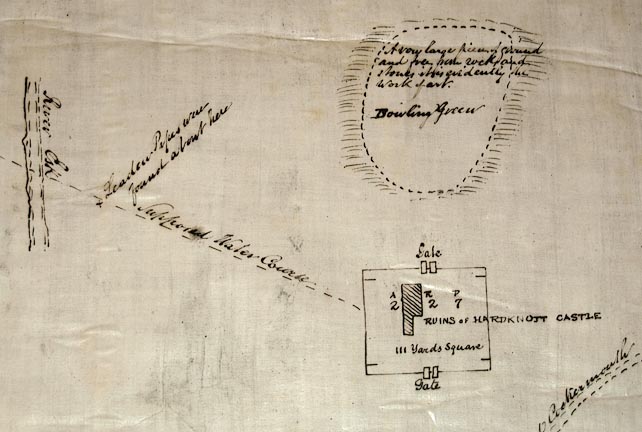 A very large piece of ground
and free from rock and
stones it is evidently the
work of art.
Bowling Green
River Esk
Leaden Pipes were
found about here
Supposed Water Course
Gate
A R P
2 2 7
RUINS OF HARDKNOTT CASTLE
111 Yards Square
Gate
Cockermouth